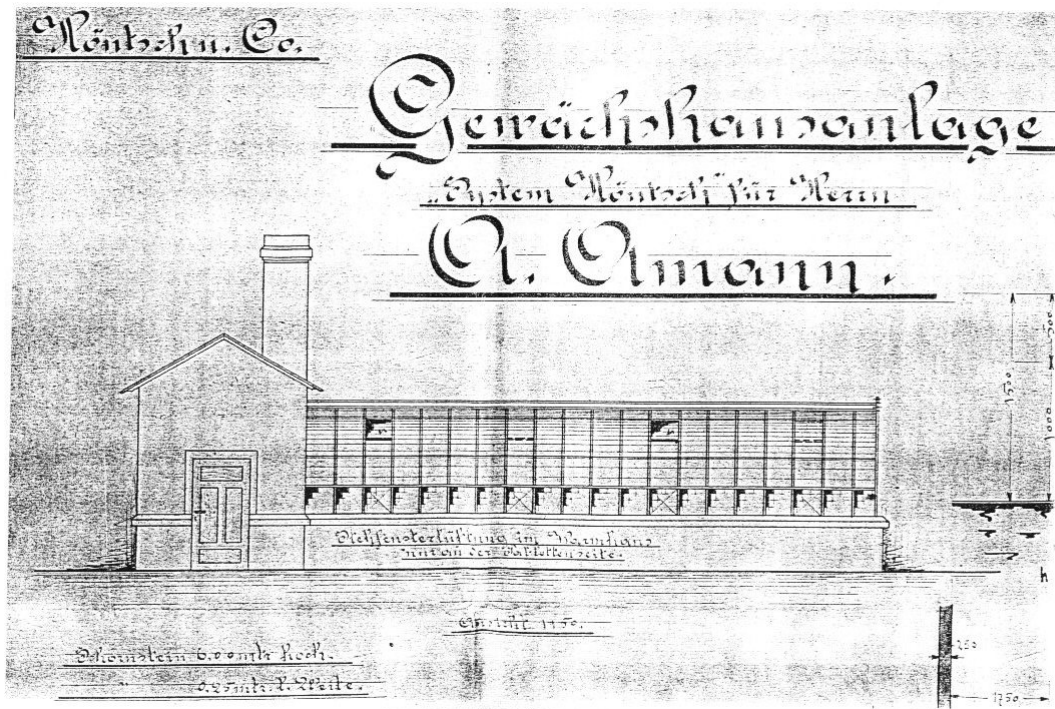 Höntsch u. Co.
Gewächshausanlage
„System Höntsch“ für Herrn
A. Amann.
500
1500
1000
Stehfensterlüftung im Warmhaus
nur an der Tablettenseite.
h
Ansicht 1:50.
Schornstein 6.00 mtr. hoch.
" 0.25 mtr. l. Weite.
250
1750